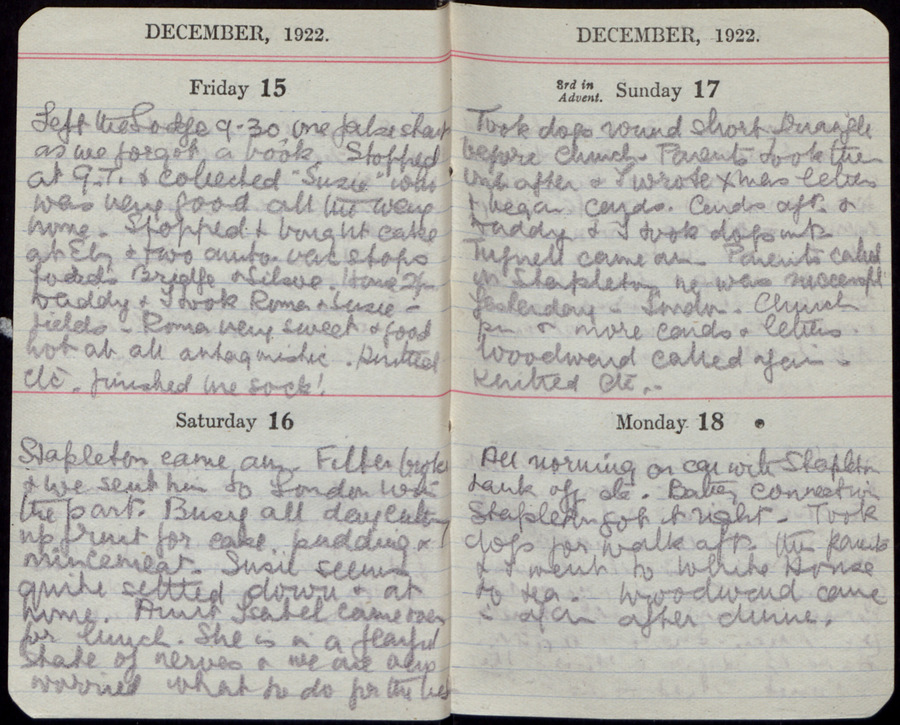 DECEMBER, 1922.
Friday 15
Left the Lodge 9-30 one false start
as we forgot a book. Stopped
at G.T. & collected "Susie" who
was very good all the way
home. Stopped & bought cake
at Ely & two auto. vac stops
Bridge & Silsoe. Home
Daddy & I took Roma & Susie -
fields - Roma very sweet & good
not at all antagonistic. Knitted
etc. finished one sock!
Saturday 16
Stapleton came am. Filter broke
& we sent him to London with
the part. Busy all day cutting
up fruit for cake pudding &
mincemeat. Susie seems
quite settled down & at
home. Aunt Isabel came over
for lunch. She is in a fearful
state of nerves & we are very
worried what to do for the best
DECEMBER, 1922.
3rd in Advent. Sunday 17
Took dogs round short
before church. Parents took them
out after & I wrote Xmas letters
& began cards. Cards aft. &
Daddy & I took dogs out.
Tufnell came am. Parents called
on Stapleton he was successful
yesterday - London. Church
pm & more cards & letters.
Woodward called again -
Knitted etc..
Monday 18
All morning on car with Stapleton
tank off etc. Battery connection
Stapleton got it right - Took
dogs for walk aft. the parents
& I went to White House
to tea - Woodward came
in again after dinner.